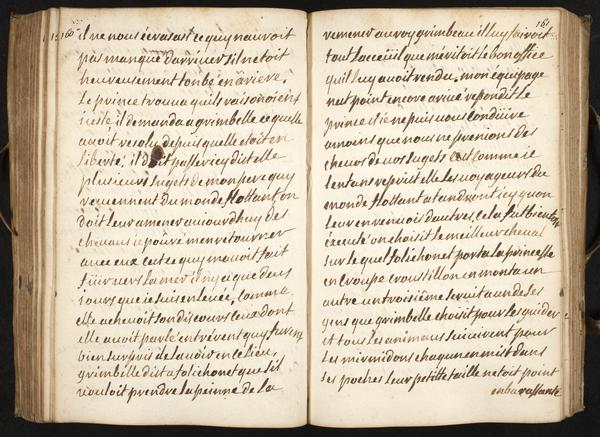 160
il ne nous écrasast ce quy nauroit
pas manqué darriver sil netoit
heureusement tonbé enariere.
Le prince trouva quils raisonoient
juste il demanda agrimbelle cequelle
avoit resolu depuis quelle etoit en
liberté, il doit passer icy dist elle
plusieurs sugets demonpere quy
reviennent du monde flottant, on
doit leur amener aujourdhuy des
chevaux je pouré men retourner
avec eux cest ce quy mavoit fait
fuir vers lamer il ny a que deux
jours que je suis en , comme
elle achevoit son discours ceux dont
elle avoit parlé entrérent quy furent
bien surpris de la voir en ce lieu,
grimbelle dist a folichonet que sil
vouloit prendre lapeinne de la
161
remener au roy grimbeau il luy feroit
tout lacceüil que meritoit le bon office
quil luy avoit rendu. mon equipage
nest point encore arivé repondit le
prince et je ne puis vous conduire
amoins que nous ne prenions des
chevos de vos sugets cest comme je
lentans reprit elle les voyageurs du
monde flottant atandront icy quon
leur en renvoie dautres, cela fut bientost
éxécuté on choisit le meilleur cheval
sur le quel folichonet porta la princesse
en croupe croustillon en monta un
autre un troisiéme servit a un de ses
gens que grimbelle choisit pour les guider
et tous les animaux suivirent pour
les mirmidons chaqun en mist dans
ses poches leur petitte taille netoit point
enbarassante